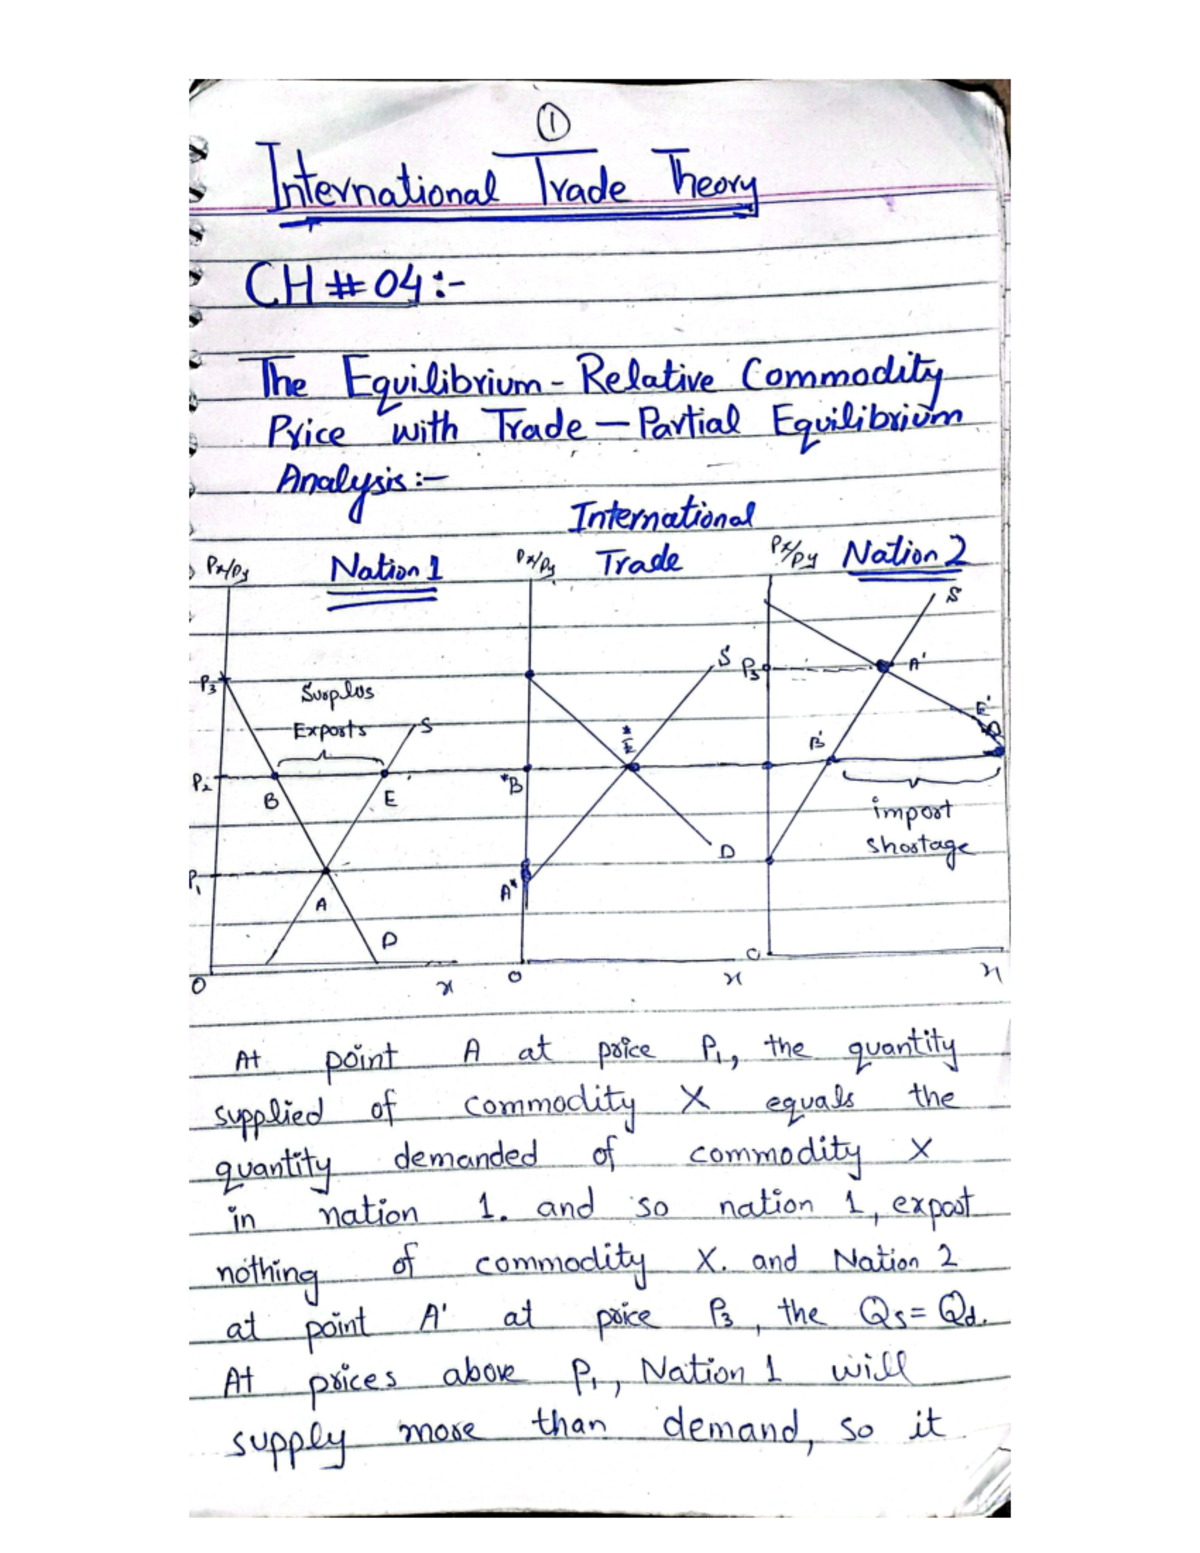 1
International Trade Theory
CH # 04:-
The Equilibrium - Relative Commodity
Price with Trade — Partial Equilibrium
Analysis :-
International
Px/Py Nation 1 Px/Py Trade Px/Py Nation 2
S
P3 Surplus S P3 A'
Exports S E'
B' D
P2 B E *B *E
import
shortage
D
P1 A A*
D
O x O x O x
At point A at price P1, the quantity
supplied of commodity X equals the
quantity demanded of commodity X
in nation 1. and so nation 1, export
nothing of commodity X. and Nation 2
at point A' at price P3, the Qs = Qd.
At prices above P1, Nation 1 will
supply more than demand, so it